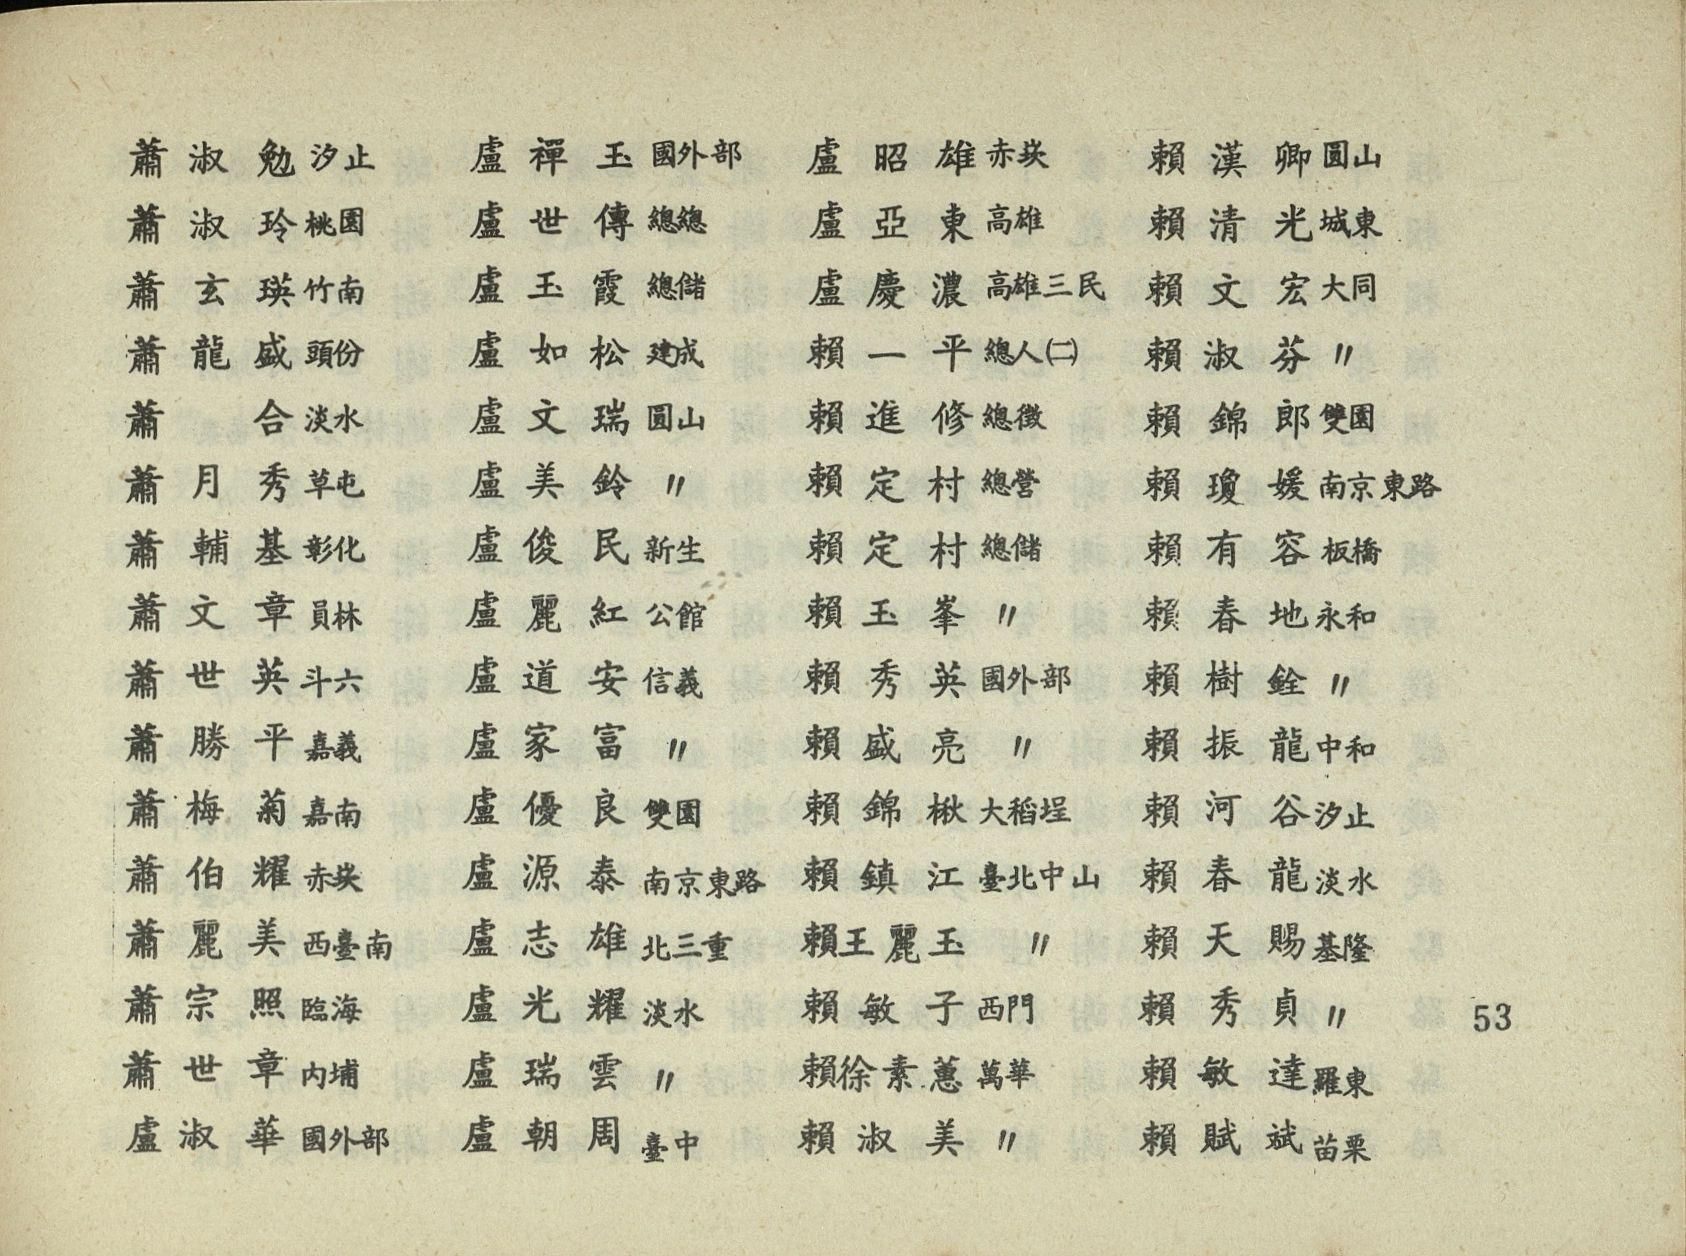 蕭淑勉 汐止
蕭淑玲 桃園
蕭玄瑛 竹南
蕭龍盛 頭份
蕭　合 淡水
蕭月秀 草屯
蕭輔基 彰化
蕭文章 員林
蕭世英 斗六
蕭勝平 嘉義
蕭梅菊 嘉南
蕭伯耀 赤崁
蕭麗美 西臺南
蕭宗照 臨海
蕭世章 內埔
盧淑華 國外部
盧禪玉 國外部
盧世傳 總總
盧玉霞 總儲
盧如松 建成
盧文瑞 圓山
盧美鈴 〃
盧俊民 新生
盧麗紅 公館
盧道安 信義
盧家富 〃
盧優良 雙園
盧源泰 南京東路
盧志雄 北三重
盧光耀 淡水
盧瑞雲 〃
盧朝周 臺中
盧昭雄 赤崁
盧亞東 高雄
盧慶濃 高雄三民
賴一平 總人㈡
賴進修 總徵
賴定村 總營
賴定村 總儲
賴玉峯 〃
賴秀英 國外部
賴盛亮 〃
賴錦楸 大稻埕
賴鎮江 臺北中山
賴王麗玉 〃
賴敏子 西門
賴徐素蕙 萬華
賴淑美 〃
賴漢卿 圓山
賴清光 城東
賴文宏 大同
賴淑芬 〃
賴錦郎 雙園
賴瓊媛 南京東路
賴有容 板橋
賴春地 永和
賴樹銓 〃
賴振龍 中和
賴河谷 汐止
賴春龍 淡水
賴天賜 基隆
賴秀貞 〃
賴敏達 羅東
賴賦斌 苗栗
53